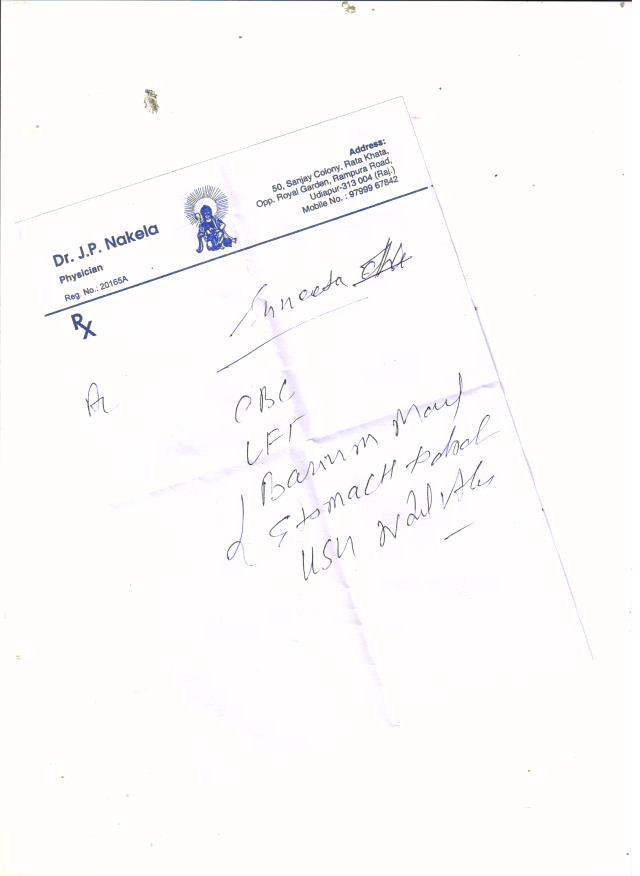 Dr. J.P. Nakela
Physician
Reg. No.: 20165A
Address:
50, Sanjay Colony, Rata Khata,
Opp. Royal Garden, Rampura Road,
Udiapur-313 004 (Raj.)
Mobile No. : 97999 67842
Rx
Suneeta
CBC
LFT
Barium Meal
Stomach
USG